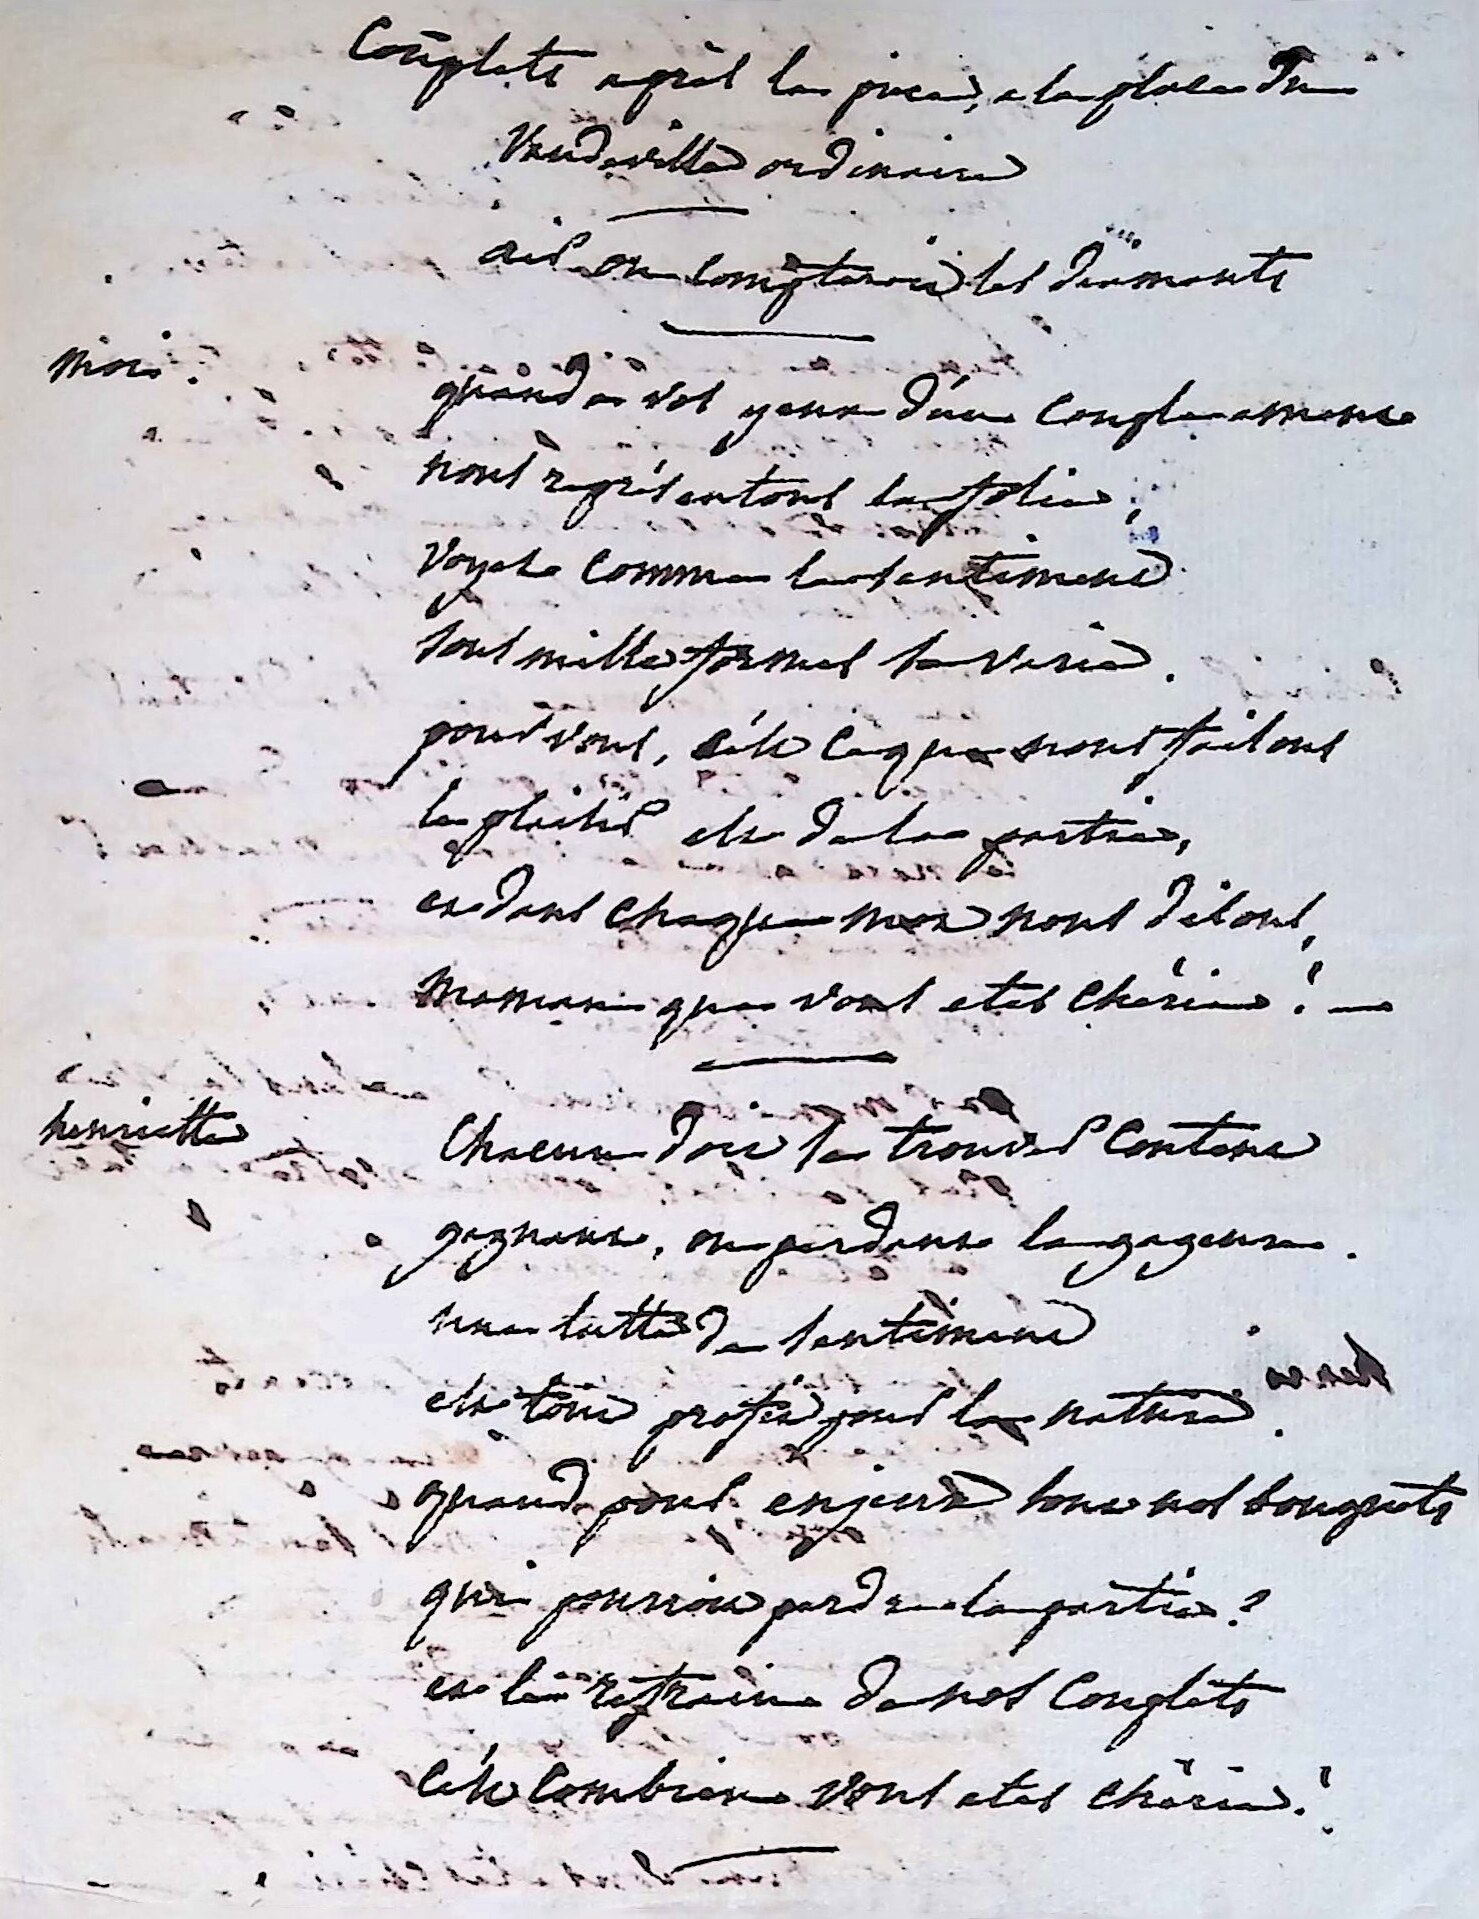 Couplets après la piece, a la place du
Vaudeville ordinaire
air on compteroit les diamants
moi.
quand a vos yeux d'un couple amant
nous représentons la folie,
voyez comme le sentiment
sous mille formes se varie.
pour vous, c'est ce que nous faisons
le plaisir est de la partie,
et dans chaque mot nous disons,
maman que vous etes chérie !
henriette
Chacun doit se trouver content
gagnant, ou perdant la gageure.
une lutte de sentiment
est tout profit pour la nature.
quand pour enjeux sont nos bouquets
qui pourroit perdre la partie ?
et le refrain de nos couplets
c'est combien vous etes chérie !